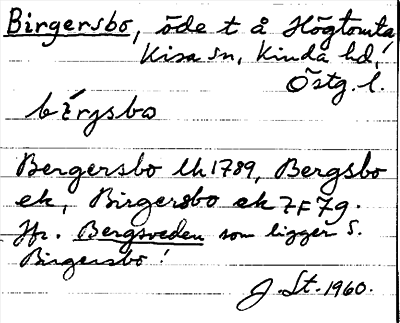 Birgersbo, öde t å Högtomta,
Kisa sn, Kinda hd,
Östg. l.
bǽrgsbo
Bergersbo lk 1789, Bergsbo
ek, Birgersbo ek 7F7g.
Jfr. Bergsveden som ligger S.
Birgersbo!
J. St. 1960.